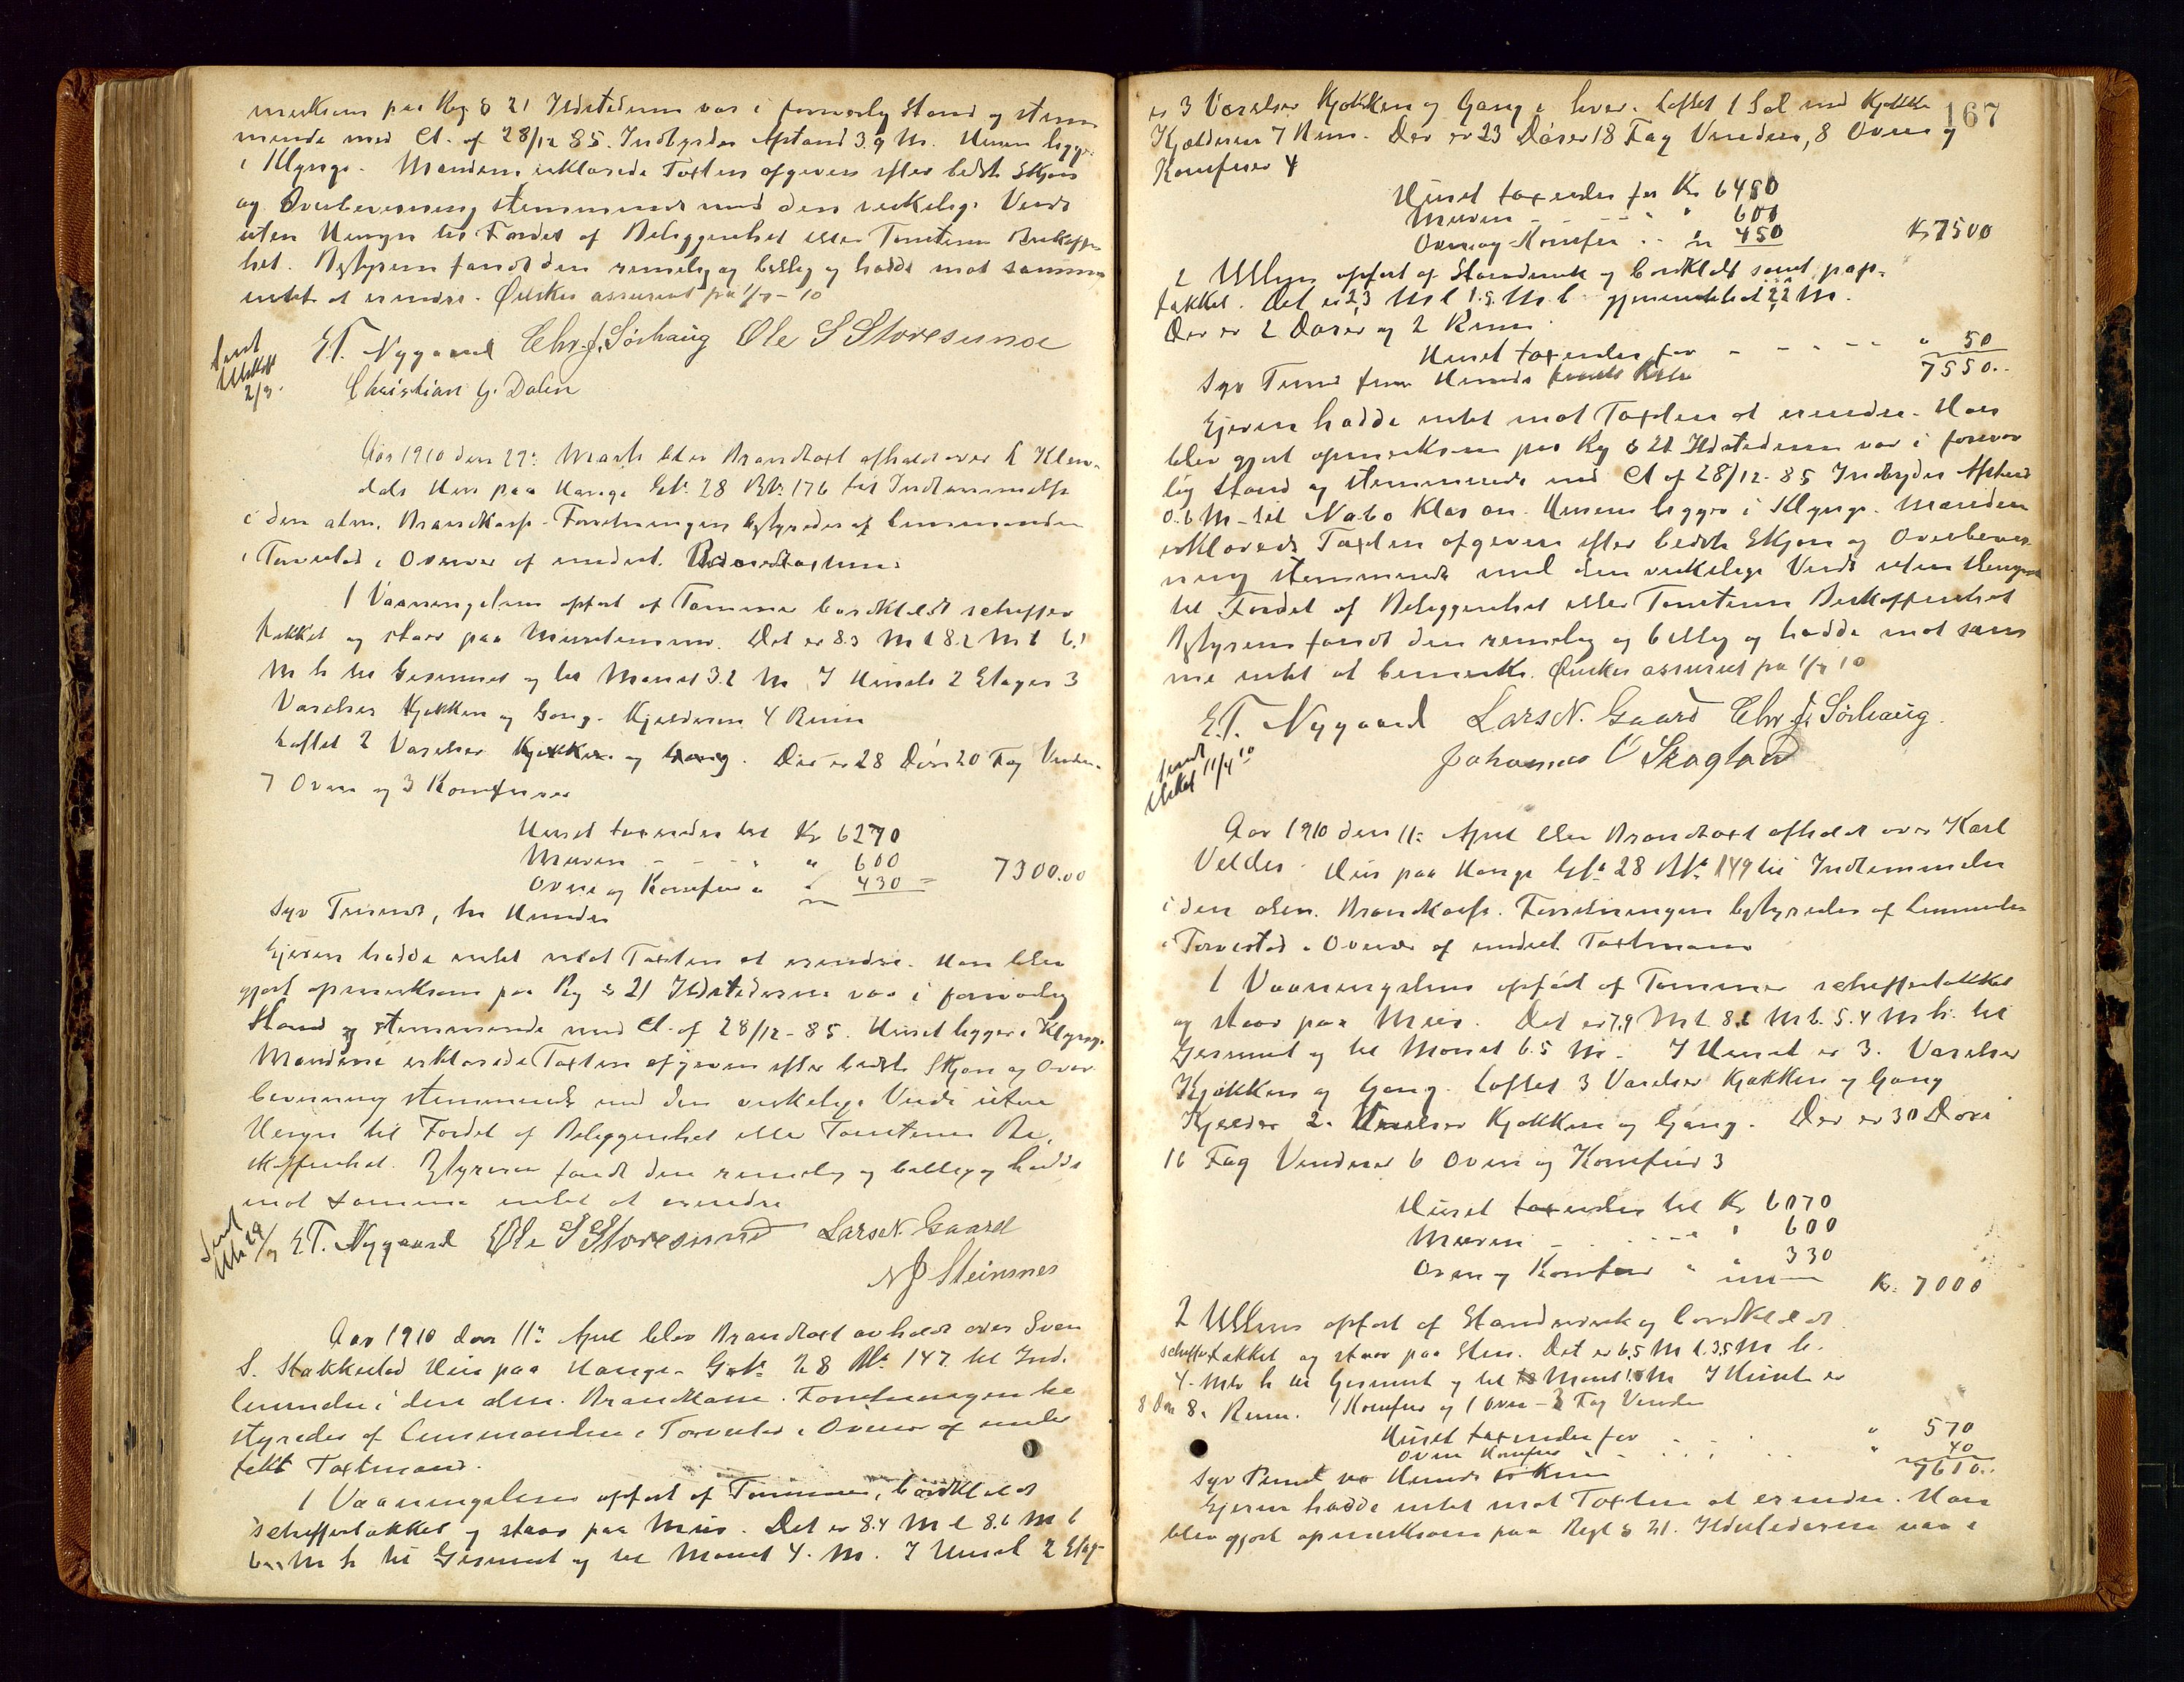 merksom paa Reg § 21 Ildstederne var i forsvarlig Stand og stem
mende med Ct. af 28/12 85. Indbyrdes Afstand 3.9 M. Husene ligger
i Klynge. Mændene erklærede Taxten afgiven efter bedste Skjøn
og Overbevisning stemmende med den virkelige Værdi
uten Hensyn til Fordel af Beliggenhet eller Tomtens Beskaffen
het. Bestyreren fandt den rimelig og billig og hadde mot samme
intet at erindre. Ønskes assureret fra 1/7 - 10
Sent Utskrift 2/3.
E.T. Nygaard Chr. J. Sørhaug Ole S Storesund
Christian G. Dalen
Aar 1910 den 29: Marts blev Brandtaxt afholdt over L Klem
dals Hus paa Hauge Gn. 28 Bn. 176 til Indlemmelse
i den alm. Brandkasse. Forretningen bestyredes af Lensmanden
i Torvestad i Overvær af undert. Brandtaxtmænd
1 Vaaningshus opført af Tømmer bordklædt skiffer
tækket og staar paa Murstensmur. Det er 8.3 M l 8.2 M b 6.1
M h til Gesimset og til Mønet 3.2 M I Huset 2 Etager 3
Værelser Kjøkken og Gang. Kjelderen 4 Rum
Loftet 2 Værelser Kjøkken og Gang. Der er 28 Døre 20 Fag Vinduer
7 Ovne og 3 Komfurer
Huset taxeredes til Kr 6270
Muren - - - " " 600
Ovne og Komfur " " 430 = 7300.00
Syv Tusind, tre Hundre
Ejeren hadde intet mot Taxten at erindre. Han blev
gjort opmerksom paa Reg § 21 Ildstederne var i forsvarlig
Stand og stemmende med Ct. af 28/12 - 85. Huset ligger i Klynge.
Mændene erklærede Taxten afgiven efter bedste Skjøn og Over
bevisning stemmende med den virkelige Værdi uten
Hensyn til Fordel af Beliggenhet eller Tomtens Be
skaffenhet. Bestyreren fandt den rimelig og billig og hadde
mot samme intet at erindre
Sent Uts 29/3
E.T. Nygaard Ole S Storesund Lars N. Gaard
N P Steinsnes
Aar 1910 den 11: April blev Brandtaxt avholdt over Sven
S. Stakkestad Hus paa Hauge. Gn. 28 Bn. 147 til Ind.
lemmelse i den alm. Brandkasse. Forretningen be
styredes af Lensmanden i Torvestad i Overvær af under
tekt Taxtmænd.
1 Vaaningshus opført af Tømmer, bordklædt
skiffertækket og staar paa Mur. Det er 8.4 M l 8.6 M b
M h til Gesimset og til Mønet 4. M. I Huset 2 Etag-
167
er 3 Værelser Kjøkken og Gang i hver. Loftet 1 Sal med Kjøkken
Kjælderen 7 Rum. Der er 23 Døre 18 Fag Vinduer, 8 Ovne og
Komfurer 4
Huset taxeredes for Kr 6450
Muren - - - - " 600
Ovne og Komfur " " 450 Kr 7500
2 Uthus opført af Standverk og bordklædt samt pap-
tækket. Det er 2.3 M l 1.9 M b gjennemsnit 2.2 M.
Der er 2 Døre og 2 Rum.
Huset taxeredes for - - - - - " 50
Syv Tusind fem Hundre femti Kr 7550..
Ejeren hadde intet mot Taxten at erindre. Han
blev gjort opmerksom paa Reg § 21 Ildstederne var i forsvar
lig Stand og stemmende med Ct af 28/12 - 85 Indbyrdes Afstand
0.6 M - til Nabo Husene ligger i Klynge. Mændene
erklærede Taxten afgiven efter bedste Skjøn og Overbevis
ning stemmende med den virkelige Værdi uten Hensyn
til Fordel af Beliggenhet eller Tomtens Beskaffenhet
Bestyreren fandt den rimelig og billig og hadde mot sam
me intet at bemerke. Ønskes assureret fra 1/7 10
E.T. Nygaard Lars N. Gaard Chr J. Sørhaug.
Johannes O Skogland
Sent Utskr 11/4 10
Aar 1910 den 11: April blev Brandtaxt afholdt over Karl
Veldes Hus paa Hauge Gn. 28 Bn. 149 til Indlemmelse
i den alm. Brandkasse. Forretningen bestyredes af Lensmanden
i Torvestad i Overvær af undert Taxtmænd
1 Vaaningshus opført af Tømmer skiffertækket
og staar paa Mur. Det er 7.9 M l. 8.2 M b. 5.4 M h. til
Gesimset og til Mønet 6.5 M. I Huset er 3. Værelser
Kjøkken og Gang. Loftet 3 Værelser Kjøkken og Gang
Kjelder 2. Værelser Kjøkken og Gang. Der er 30 Døre
16 Fag Vinduer 6 Ovne og Komfur 3
Huset taxeredes til Kr 6070
Muren - - - - " 600
Ovne og Komfur " " 330 Kr. 7000
2 Uthus opført af Standverk og bordklædt
skiffertækket og staar paa Sten. Det er 6.5 M l. 3.5 M b.
4. M h til Gesimset og til Mønet M I Huset er
8 Døre 8. Rum. 1 Komfur og 1 Ovn - 3 Fag Vinduer
Huset taxeredes for - - " 570
Ovn Komfur - - - " 40
Syv Tusind Hundre ti Kr 7610..
Ejeren hadde intet mot Taxten at erindre. Han
blev gjort opmerksom paa Regl § 21. Ildstederne var i